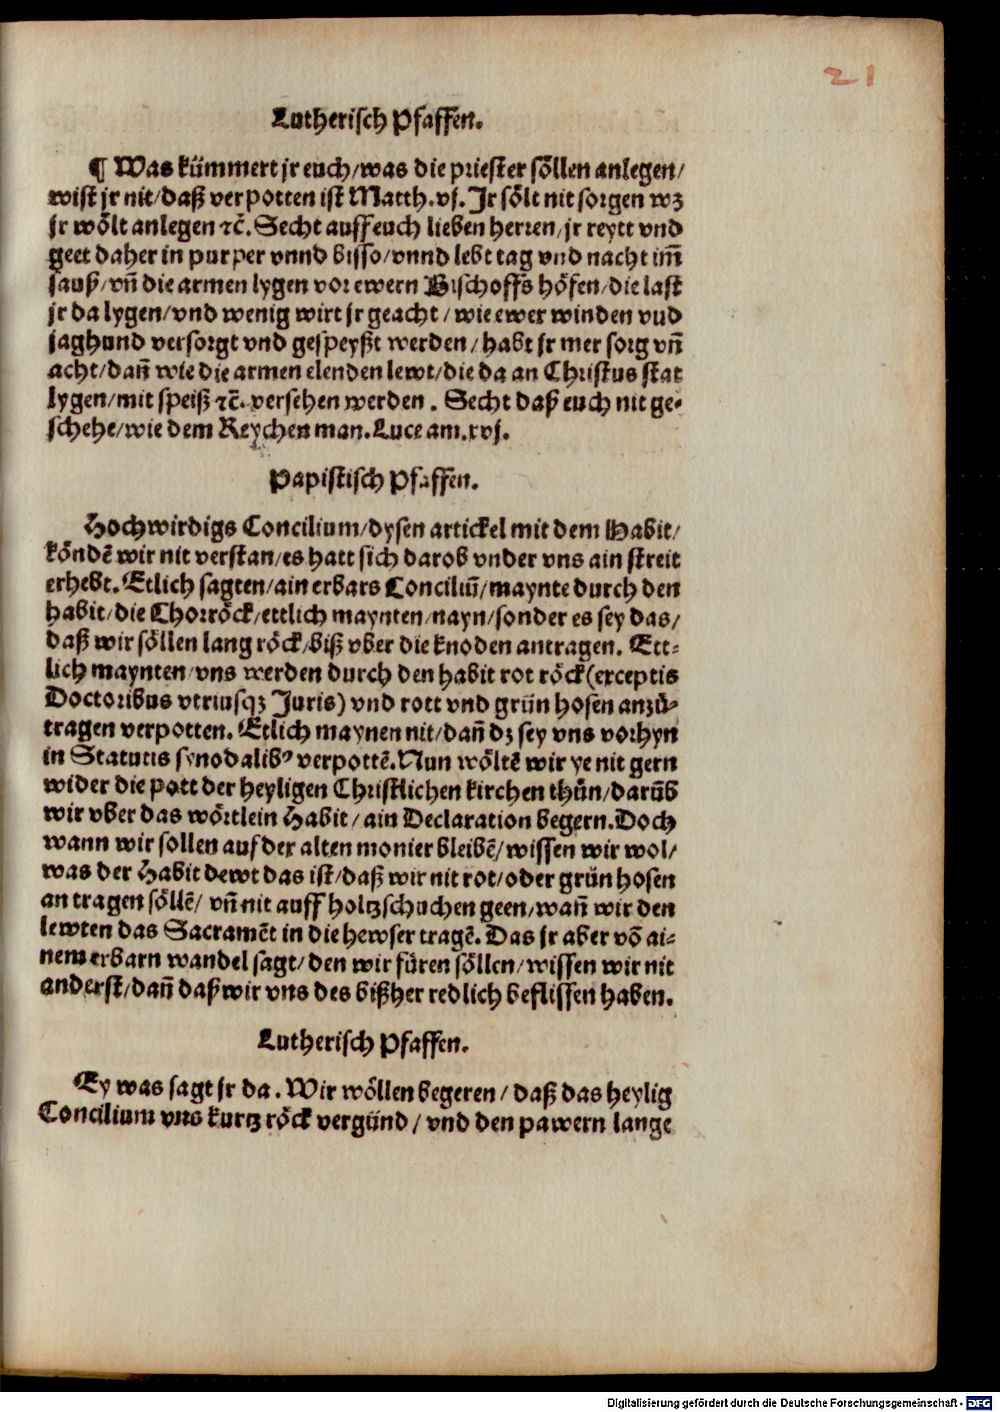 21
Lutherisch Pfaffen.
¶ Was kümmert jr euch/was die priester söllen anlegen/
wist jr nit/daß verpotten ist Matth.vj. Jr sölt nit sorgen wz
jr wölt anlegen ⁊c̄. Secht auff euch lieben herren/jr reytt vnd
geet daher in purper vnnd bisso/vnnd lebt tag vnd nacht im̄
sauß/vn̄ die armen lygen vor ewern Bischoffs höfen/die last
jr da lygen/vnd wenig wirt jr geacht/wie ewer winden vud
jaghund versorgt vnd gespeyßt werden/habt jr mer sorg vn̄
acht/dan̄ wie die armen elenden lewt/die da an Christus stat
lygen/mit speiß ⁊c̄. versehen werden. Secht daß euch nit ge-
schehe/wie dem Reychen man. Luce am.xvj.
Papistisch Pfaffen.
Hochwirdigs Concilium/dysen artickel mit dem Habit/
köndē wir nit verstan/es hatt sich darob vnder vns ain streit
erhebt. Etlich sagten/ain erbars Conciliū/maynte durch den
habit/die Chorröck/ettlich maynten/nayn/sonder es sey das/
daß wir söllen lang röck/biß vber die knoden antragen. Ett-
lich maynten/vns werden durch den habit rot röck(exceptis
Doctoribus vtriusqz Juris) vnd rott vnd grün hosen anzů-
tragen verpotten. Etlich maynen nit/dan̄ dz sey vns vorhyn
in Statutis synodalibꝰ verpottē. Nun wöltē wir ye nit gern
wider die pott der heyligen Christlichen kirchen thůn/darūb
wir vber das wörtlein Habit/ain Declaration begern. Doch
wann wir sollen auf der alten monier bleibē/wissen wir wol/
was der Habit dewt das ist/daß wir nit rot/oder grün hosen
an tragen söllē/ vn̄ nit auff holtzschuchen geen/wan̄ wir den
lewten das Sacramēt in die hewser tragē. Das jr aber vō ai-
nem erbarn wandel sagt/den wir füren söllen/wissen wir nit
anderst/dan̄ daß wir vns des bißher redlich beflissen haben.
Lutherisch Pfaffen.
Ey was sagt jr da. Wir wöllen begeren/daß das heylig
Concilium vns kurtz röck vergünd/vnd den pawern lange
Digitalisierung gefördert durch die Deutsche Forschungsgemeinschaft - DFG